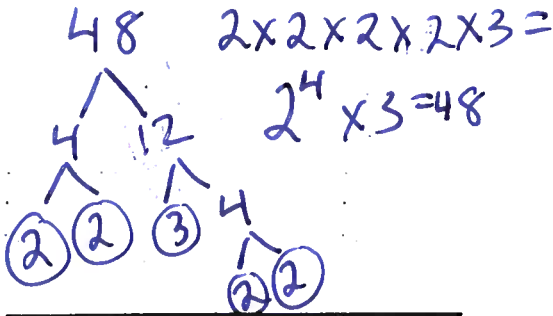 48 2×2×2×2×3=
2⁴ ×3=48
4 12
2 2 3 4
2 2